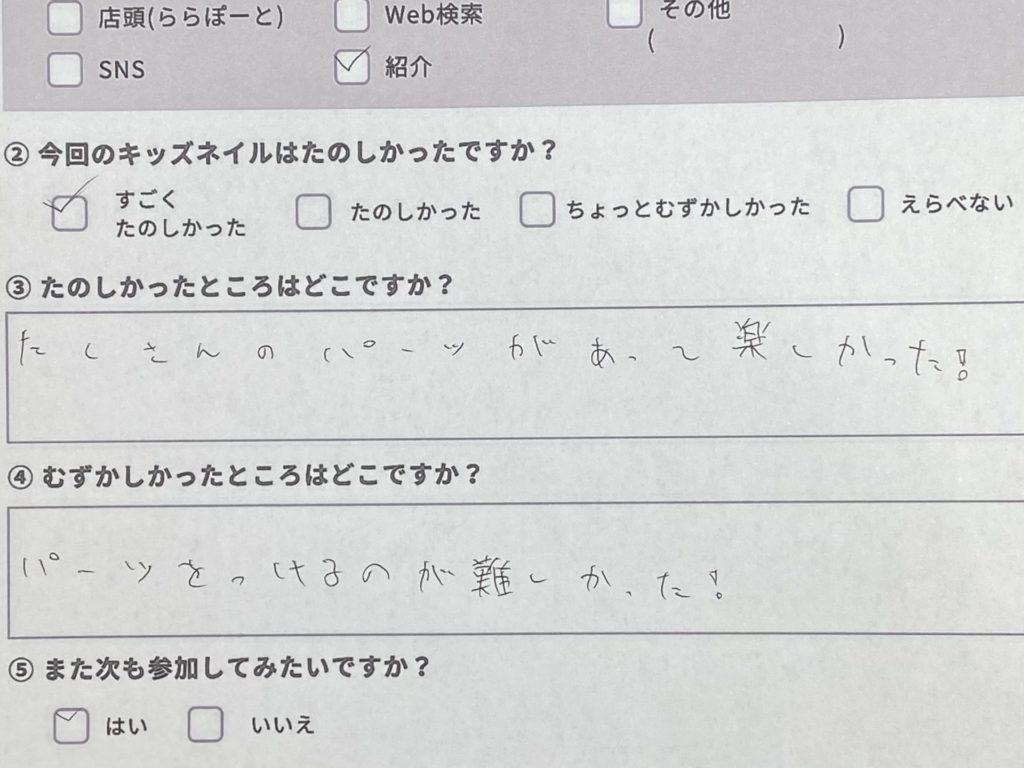 店頭(ららぽーと)
Web検索
その他
(          )
SNS
紹介
② 今回のキッズネイルはたのしかったですか？
すごく
たのしかった
たのしかった
ちょっとむずかしかった
えらべない
③ たのしかったところはどこですか？
たくさんのパーツがあって楽しかった!
④ むずかしかったところはどこですか？
パーツをつけるのが難しかった!
⑤ また次も参加してみたいですか？
はい
いいえ